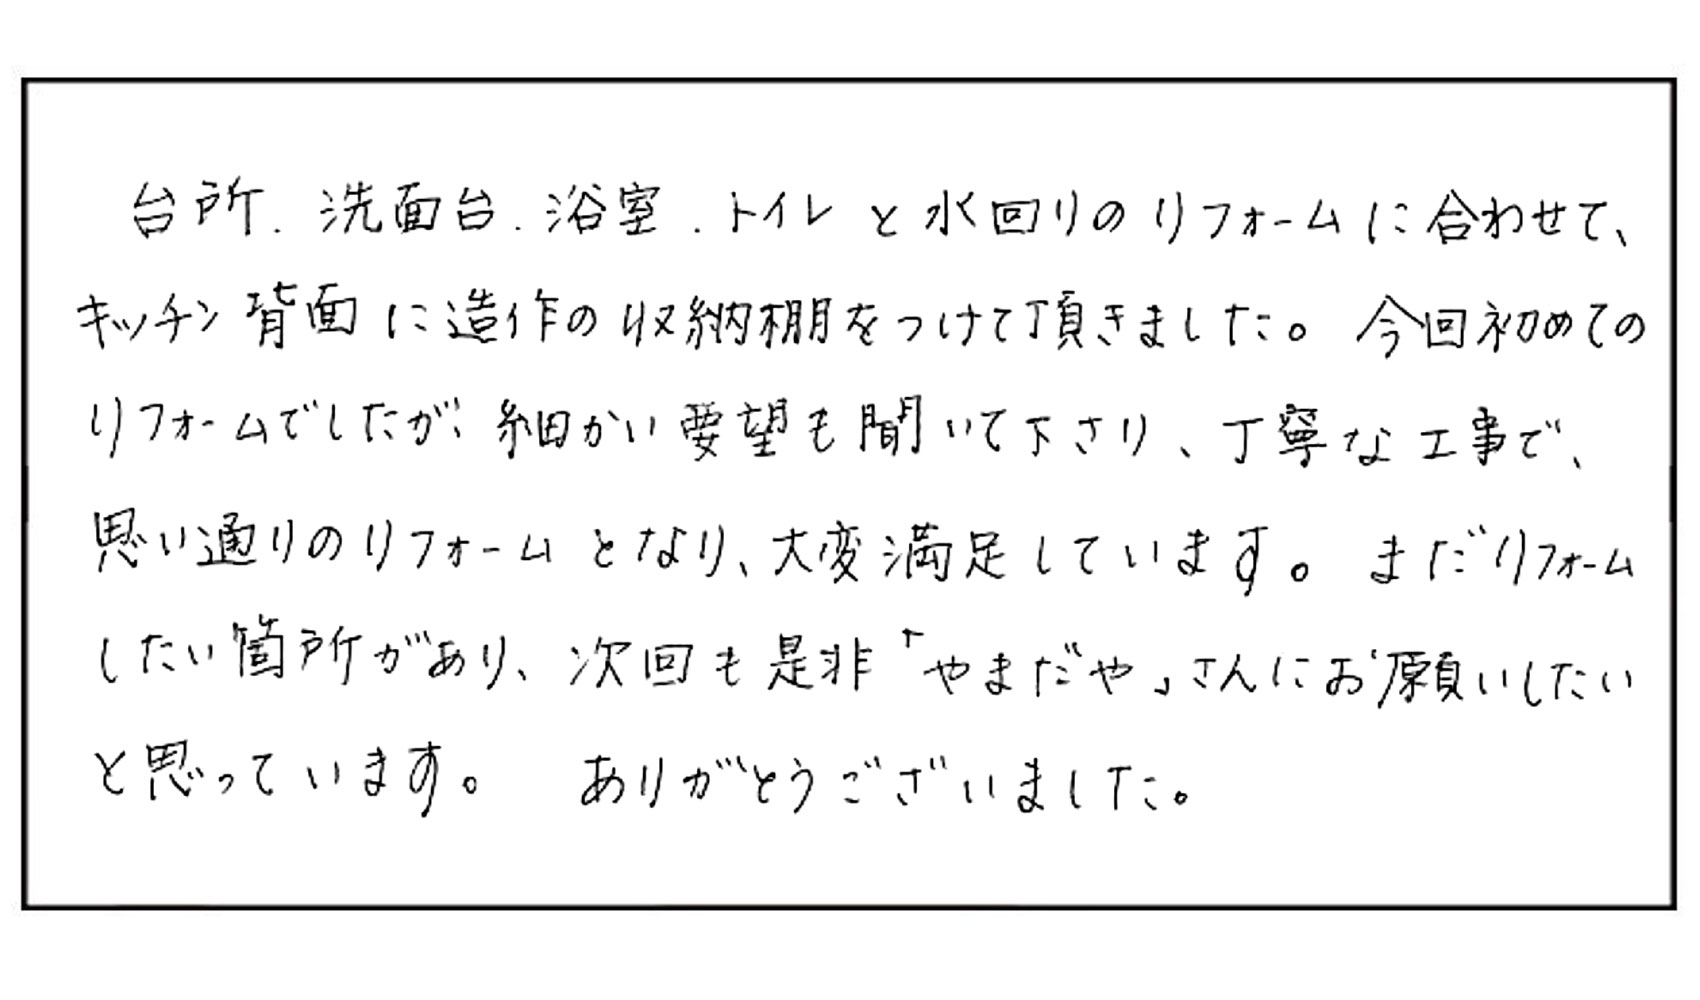 台所.洗面台.浴室.トイレと水回りのリフォームに合わせて、
キッチン背面に造作の収納棚をつけて頂きました。今回初めての
リフォームでしたが、細かい要望も聞いて下さり、丁寧な工事で、
思い通りのリフォームとなり、大変満足しています。まだリフォーム
したい箇所があり、次回も是非「やまだや」さんにお願いしたい
と思っています。 ありがとうございました。